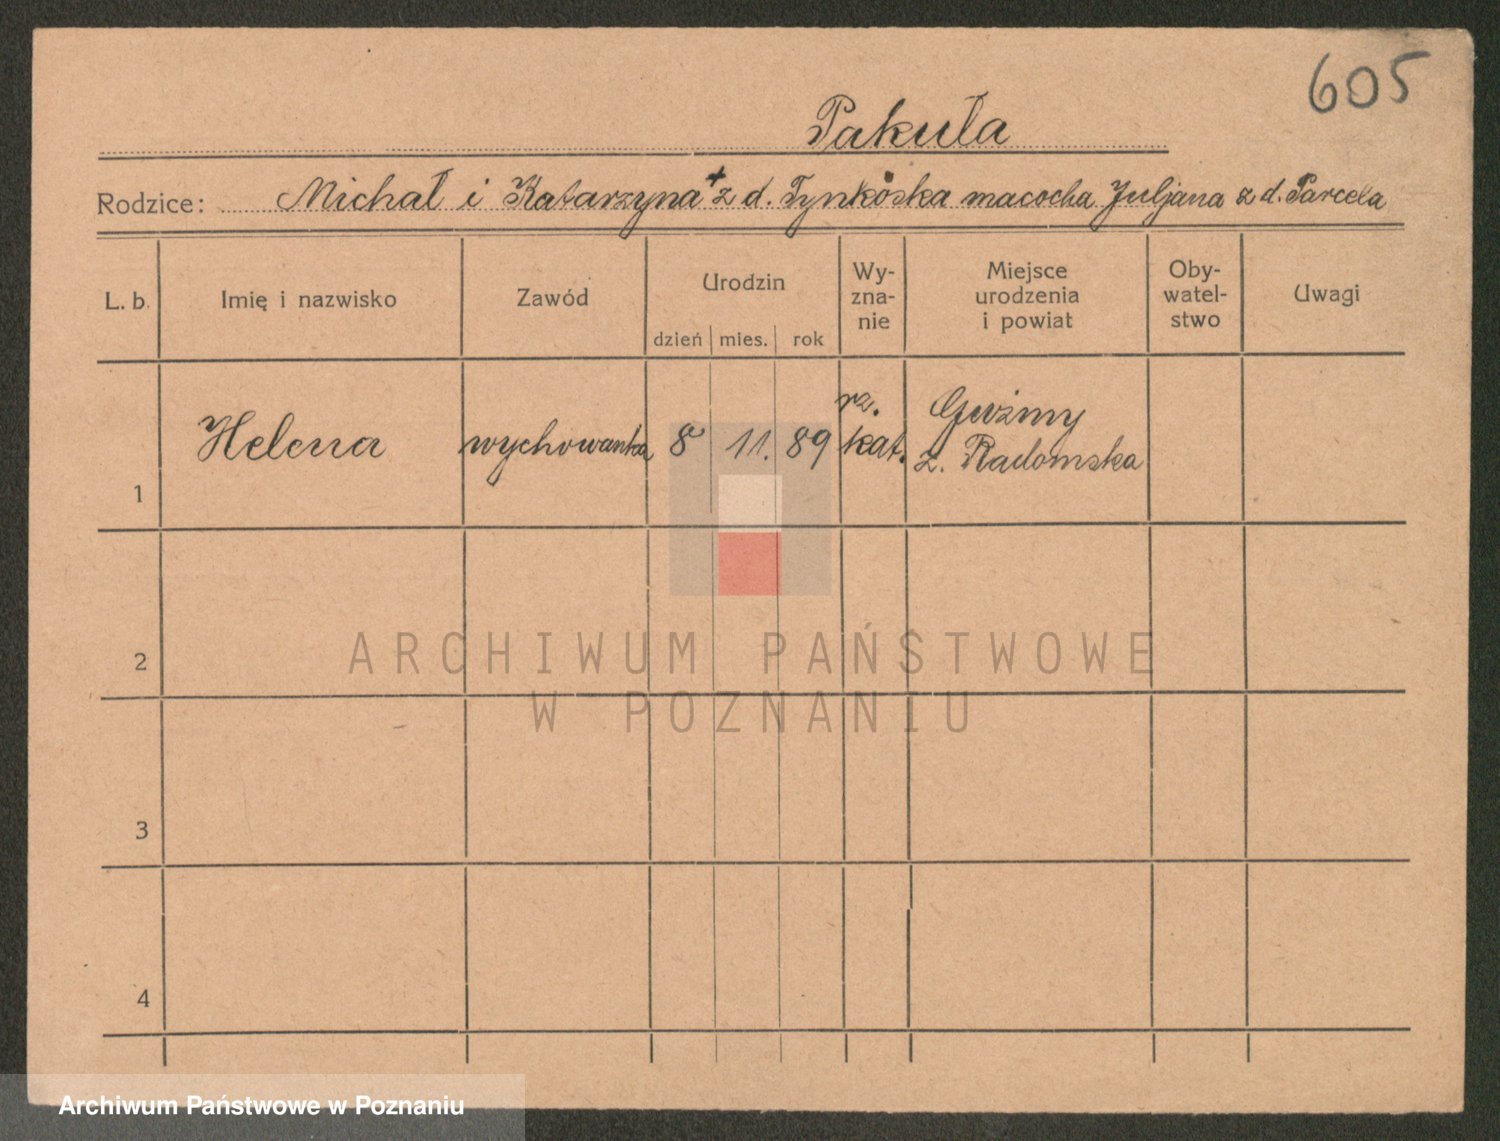 605
Pakuła
Rodzice: Michał i Katarzyna + z d. macocha Juljana z d. Parcela
L. b. Imię i nazwisko Zawód Urodzin Wy-zna-nie Miejsce urodzenia i powiat Oby-watel-stwo Uwagi
dzień mies. rok
1 Helena wychowanka 8 11. 89 rz. kat. z. Radomska
2
3
4
ARCHIWUM PAŃSTWOWE
W POZNANIU
Archiwum Państwowe w Poznaniu